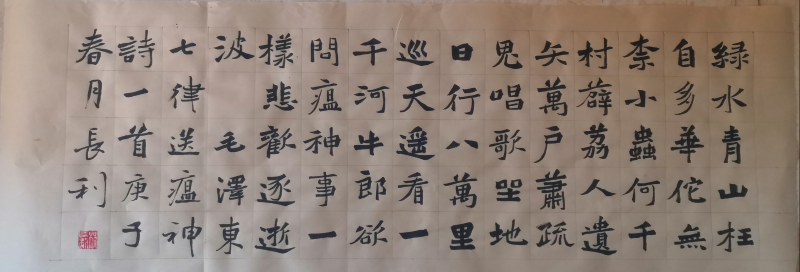 緑水青山枉
自多華佗無
柰小蟲何千
村薜荔人遺
矢萬户蕭疏
鬼唱歌坐地
日行八萬里
巡天遥看一
千河牛郎欲
問瘟神事一
樣悲歡逐逝
波 毛澤東
七律送瘟神
詩一首庚子
春月長利